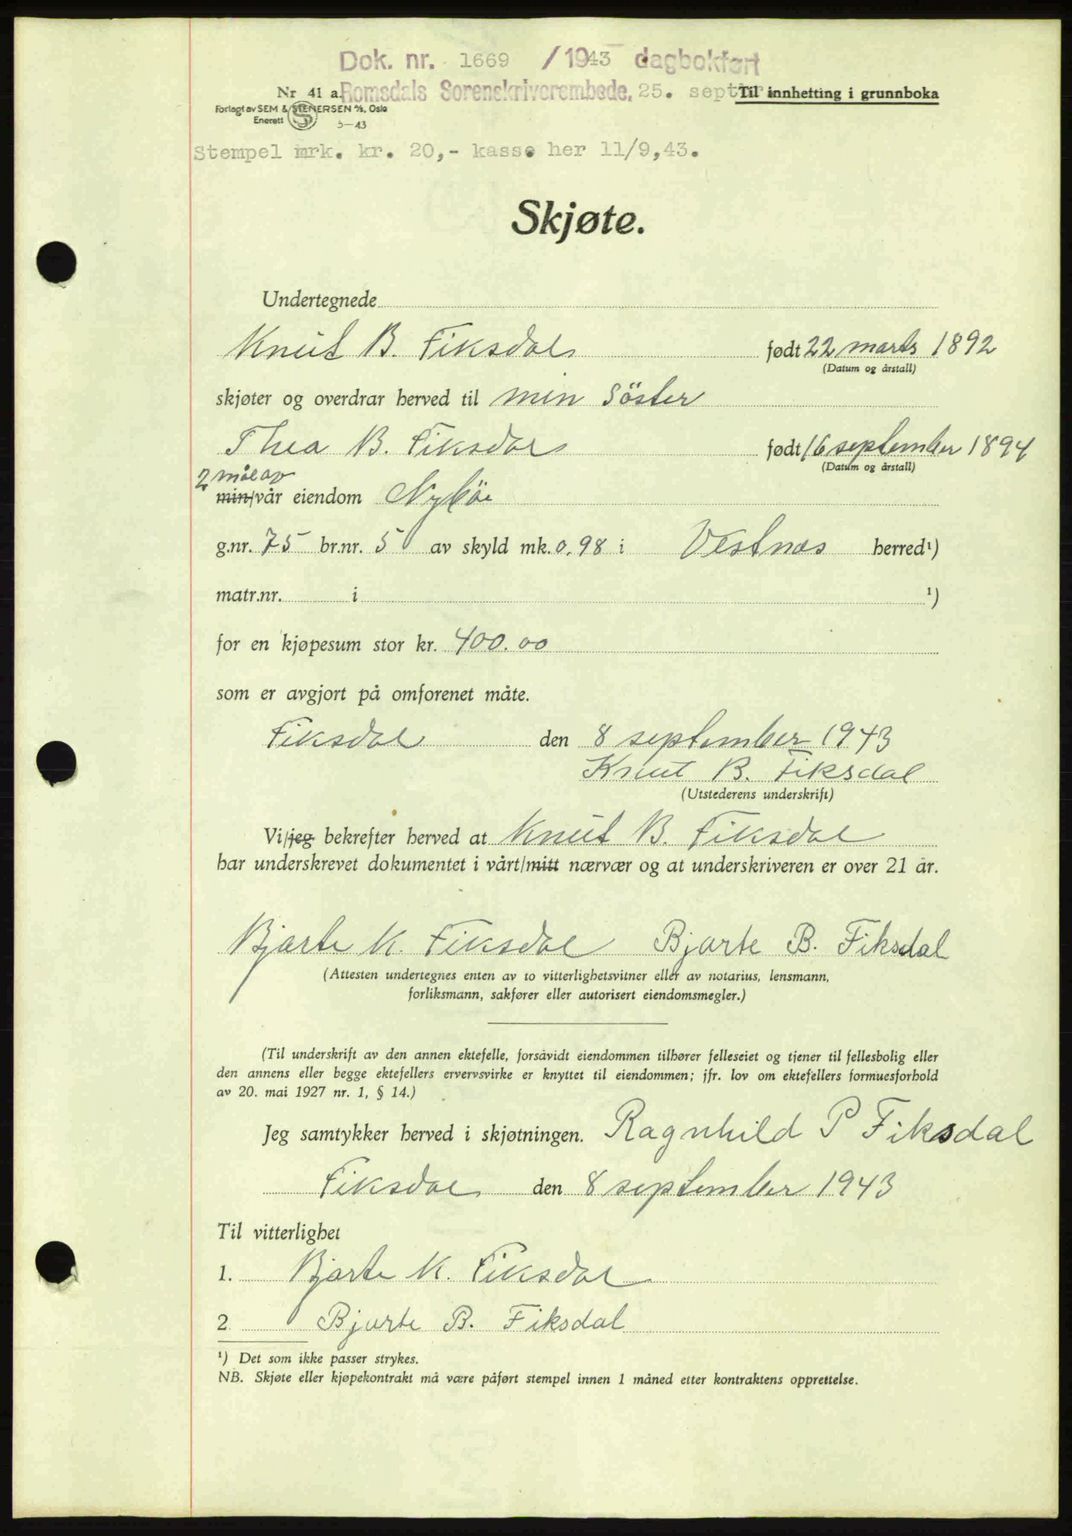 Dok. nr. 1669 /1943 dagbokført
Nr 41 a. Romsdals Sorenskriverembede, 25. sept. Til innhetting i grunnboka
Forlagt av SEM & STENERSEN A/S, Oslo
Enerett S 5-43
Stempel mrk. kr. 20,- kasse her 11/9,43.
Skjøte.
Undertegnede
Knut B. Fiksdal født 22 marts 1892
(Datum og årstall)
skjøter og overdrar herved til min Söster
Thea B. Fiksdal født 16 september 1894
(Datum og årstall)
2 mål av
min/vår eiendom Nybøe
g.nr. 75 br.nr. 5 av skyld mk. 0.98 i Vestnas herred¹)
matr.nr. i ¹)
for en kjøpesum stor kr. 400.00
som er avgjort på omforenet måte.
Fiksdal den 8 september 1943
Knut B. Fiksdal
(Utstederens underskrift)
Vi/jeg bekrefter herved at Knut B. Fiksdal
har underskrevet dokumentet i vårt/mitt nærvær og at underskriveren er over 21 år.
Bjarte K. Fiksdal Bjarte B. Fiksdal
(Attesten undertegnes enten av to vitterlighetsvitner eller av notarius, lensmann,
forliksmann, sakfører eller autorisert eiendomsmegler.)
(Til underskrift av den annen ektefelle, forsåvidt eiendommen tilhører felleseiet og tjener til fellesbolig eller
den annens eller begge ektefellers ervervsvirke er knyttet til eiendommen; jfr. lov om ektefellers formuesforhold
av 20. mai 1927 nr. 1, § 14.)
Jeg samtykker herved i skjøtningen. Ragnhild P Fiksdal
Fiksdal den 8 september 1943
Til vitterlighet
1. Bjarte K. Fiksdal
2 Bjarte B. Fiksdal
¹) Det som ikke passer strykes.
NB. Skjøte eller kjøpekontrakt må være påført stempel innen 1 måned etter kontraktens opprettelse.